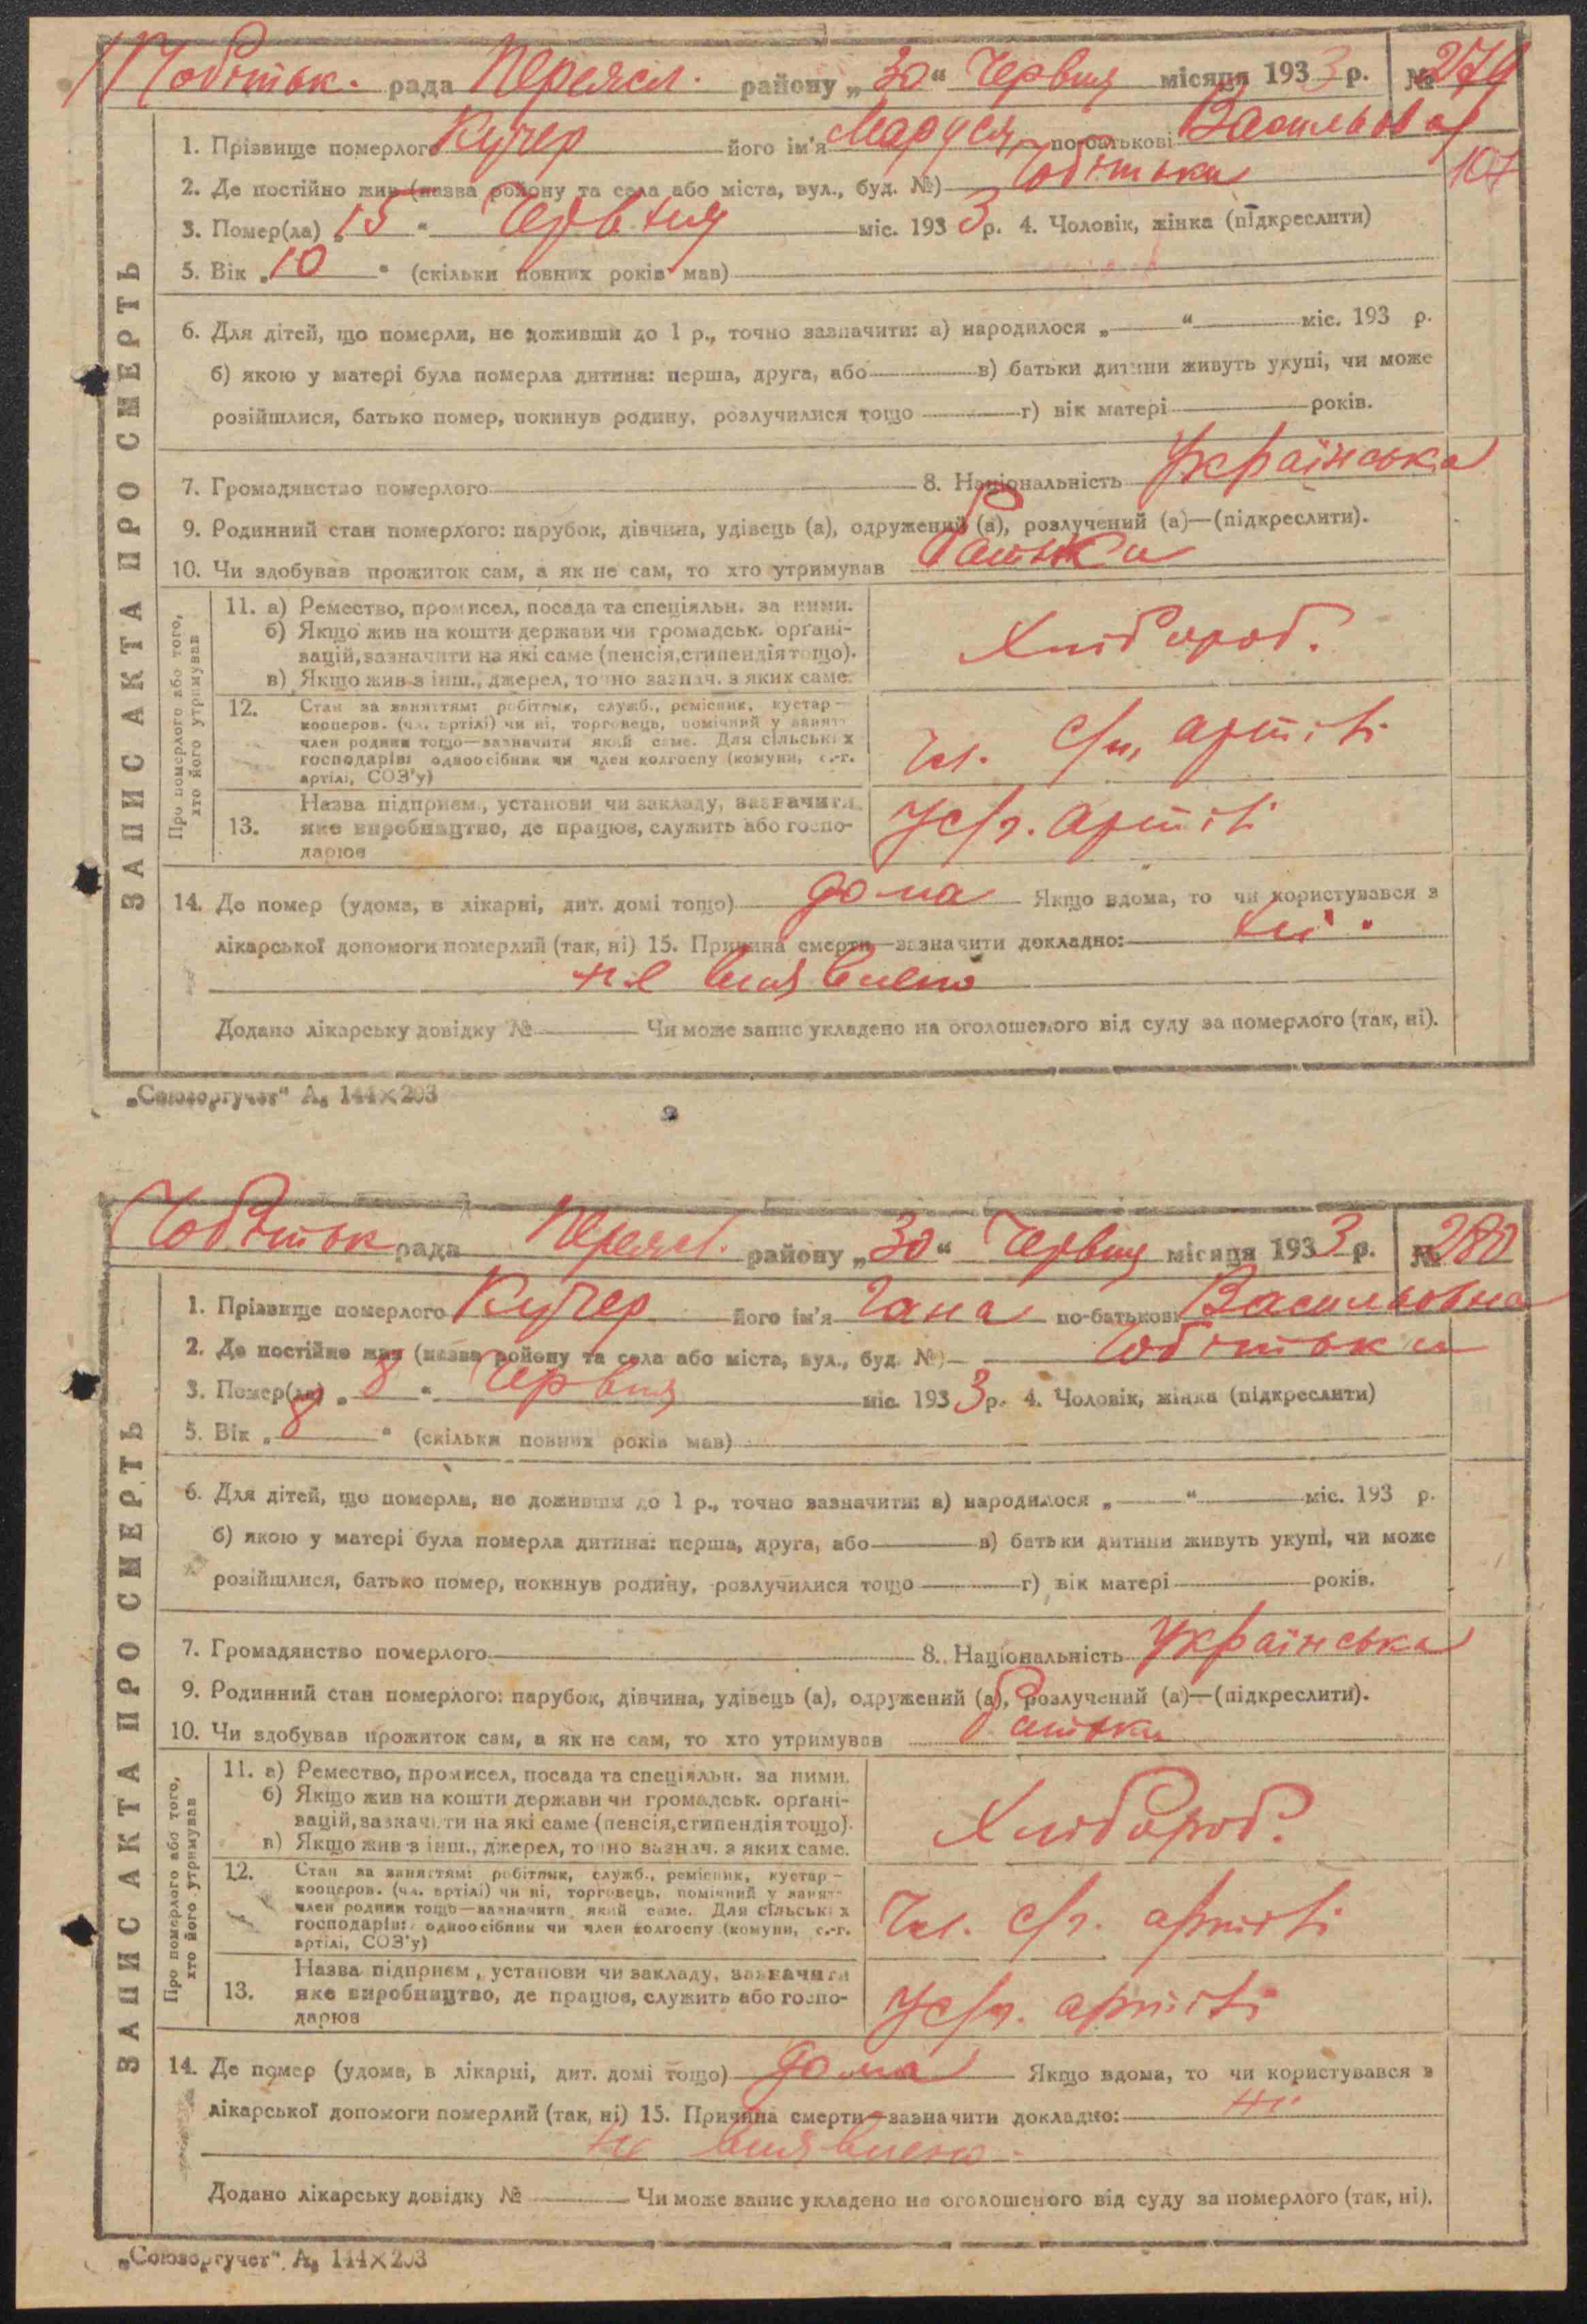 Чобітьк. рада Переясл. району „30“ Червня місяця 1933 р. № 279
1. Прізвище померлого Кучер його ім'я Маруся по-батькові Васильовна
107
2. Де постійно жив (назва району та села або міста, вул., буд. №) Чобітьки
3. Помер(ла) „15“ Червня міс. 1933 р. 4. Чоловік, жінка (підкреслити)
5. Вік „10“ (скільки повних років мав)
6. Для дітей, що померли, не доживши до 1 р., точно зазначити: а) народилося „ “ міс. 193 р.
б) якою у матері була померла дитина: перша, друга, або в) батьки дитини живуть укупі, чи може
розійшлися, батько помер, покинув родину, розлучилися тощо г) вік матері років.
7. Громадянство померлого 8. Національність Українська
9. Родинний стан померлого: парубок, дівчина, удівець (а), одружений (а), розлучений (а)—(підкреслити).
10. Чи здобував прожиток сам, а як не сам, то хто утримував батьки
ЗАПИС АКТА ПРО СМЕРТЬ
Про померлого або того, хто його утримував
11. а) Ремество, промисел, посада та спеціяльн. за ними.
б) Якщо жив на кошти держави чи громадськ. органі-
зацій, зазначити на які саме (пенсія, стипендія тощо).
в) Якщо жив з інш., джерел, точно зазнач. з яких саме.
Хлібороб.
12. Стан за заняттям: робітник, служб., ремісник, кустар—
кооперов. (чл. артілі) чи ні, торговець, помічний у занят.
член родини тощо—зазначити який саме. Для сільських
господарів: одноосібник чи член колгоспу (комуни, с.-г.
артілі, СОЗ'у)
Чл. с/г. артілі
13. Назва підприєм., установи чи закладу, зазначити
яке виробництво, де працює, служить або госпо-
дарює
У с/г. артілі
14. Де помер (удома, в лікарні, дит. домі тощо) дома Якщо вдома, то чи користувався з
лікарської допомоги померлий (так, ні) 15. Причина смерти—зазначити докладно: ні
не виявлено
Додано лікарську довідку № Чи може запис укладено на оголошеного від суду за померлого (так, ні).
„Союзоргучет“ А₅ 144×203
Чобітьк рада Переясл. району „30“ Червня місяця 1933 р. № 280
1. Прізвище померлого Кучер його ім'я Гана по-батькові Васильовна
2. Де постійно жив (назва району та села або міста, вул., буд. №) Чобітьки
3. Помер(ла) „8“ Червня міс. 1933 р. 4. Чоловік, жінка (підкреслити)
5. Вік „8“ (скільки повних років мав)
6. Для дітей, що померли, не доживши до 1 р., точно зазначити: а) народилося „ “ міс. 193 р.
б) якою у матері була померла дитина: перша, друга, або в) батьки дитини живуть укупі, чи може
розійшлися, батько помер, покинув родину, розлучилися тощо г) вік матері років.
7. Громадянство померлого 8. Національність Українська
9. Родинний стан померлого: парубок, дівчина, удівець (а), одружений (а), розлучений (а)—(підкреслити).
10. Чи здобував прожиток сам, а як не сам, то хто утримував батьки
ЗАПИС АКТА ПРО СМЕРТЬ
Про померлого або того, хто його утримував
11. а) Ремество, промисел, посада та спеціяльн. за ними.
б) Якщо жив на кошти держави чи громадськ. органі-
зацій, зазначити на які саме (пенсія, стипендія тощо).
в) Якщо жив з інш., джерел, точно зазнач. з яких саме.
Хлібороб.
12. Стан за заняттям: робітник, служб., ремісник, кустар—
кооперов. (чл. артілі) чи ні, торговець, помічний у занят.
член родини тощо—зазначити який саме. Для сільських
господарів: одноосібник чи член колгоспу (комуни, с.-г.
артілі, СОЗ'у)
Чл. с/г. артілі
13. Назва підприєм., установи чи закладу, зазначити
яке виробництво, де працює, служить або госпо-
дарює
У с/г. артілі
14. Де помер (удома, в лікарні, дит. домі тощо) дома Якщо вдома, то чи користувався з
лікарської допомоги померлий (так, ні) 15. Причина смерти—зазначити докладно: ні
не виявлено.
Додано лікарську довідку № Чи може запис укладено на оголошеного від суду за померлого (так, ні).
„Союзоргучет“ А₅ 144×203